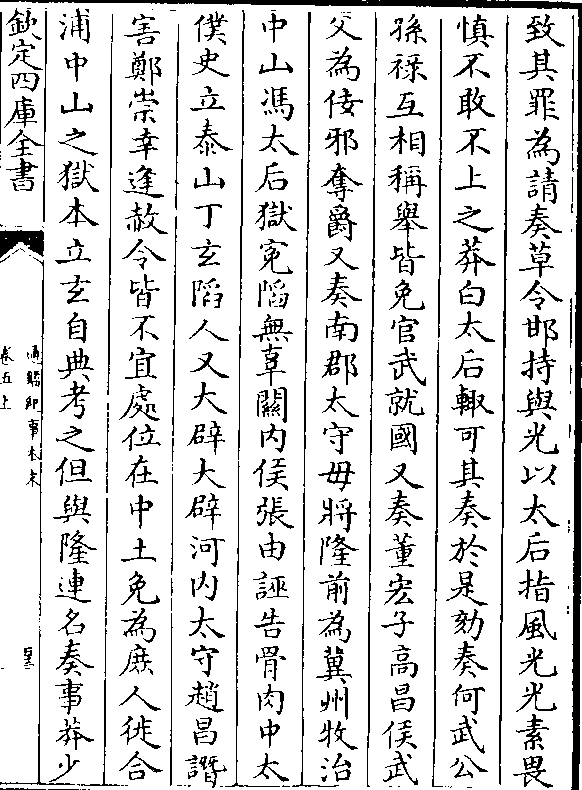 致其罪為請奏草令邯持與光以太后指風光光素畏
慎不敢不上之莽白太后輙可其奏於是劾奏何武公
孫禄互相稱舉皆免官武就國又奏董宏子髙昌侯武
父為佞邪奪爵又奏南郡太守毋將隆前為冀州牧治
中山馮太后獄寃陷無辜關内侯張由誣告骨肉中太
僕史立泰山丁玄陷人又大辟大辟河内太守趙昌譖
害鄭崇幸逢赦令皆不宜處位在中土免為庶人徙合
浦中山之獄本立玄自典考之但與隆連名奏事莽少
欽定四庫全書
通鑑紀事本末
卷五上